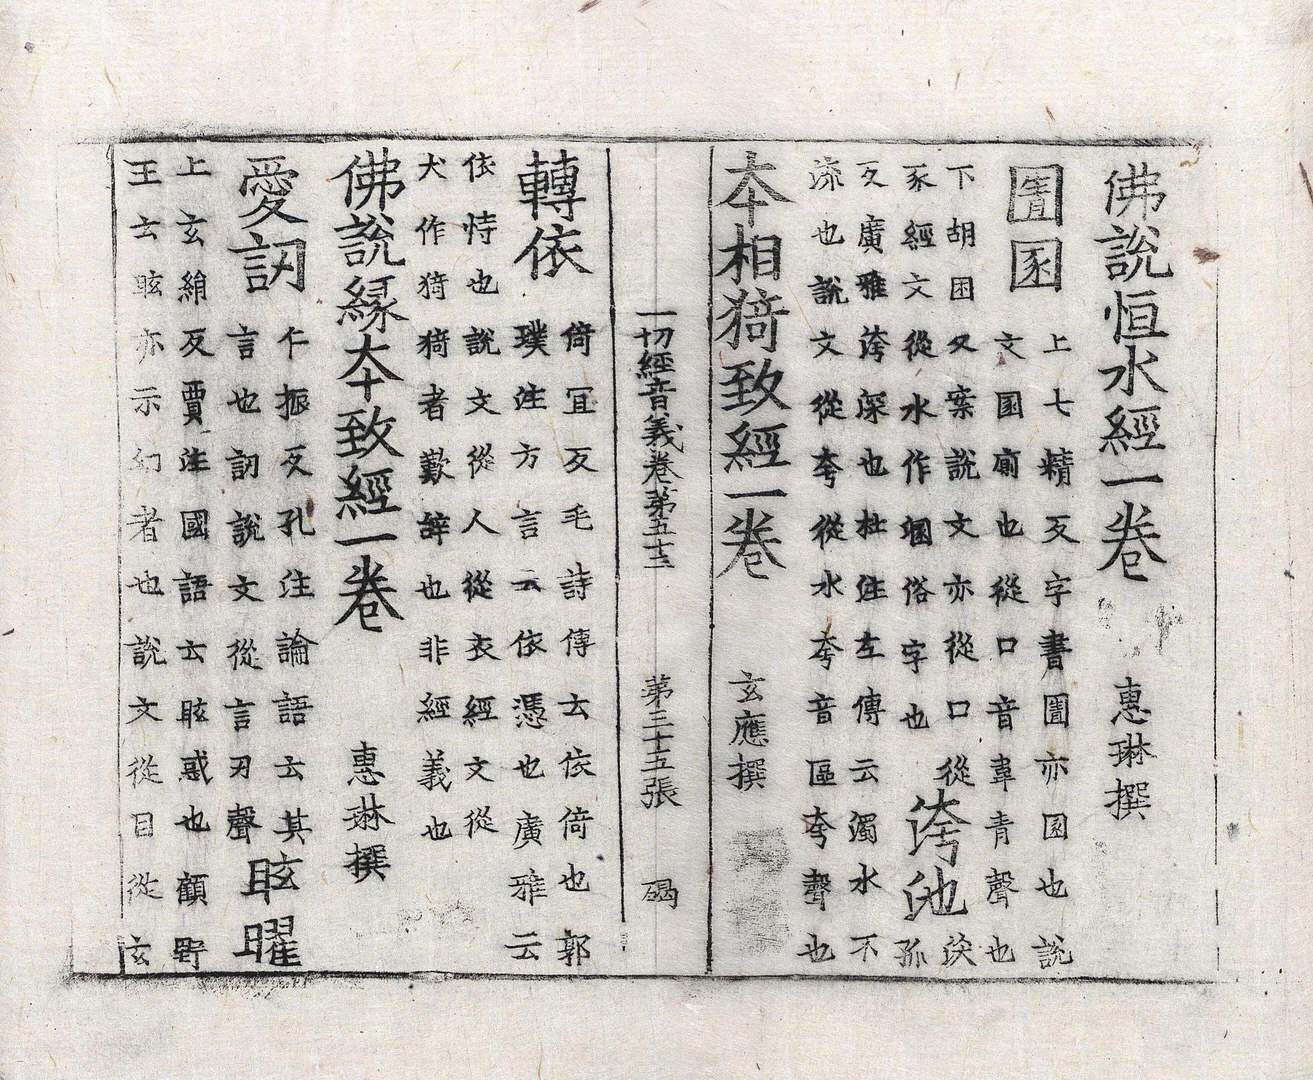 佛說恒水經一卷 惠琳撰
圊圂
上七精反字書圊亦圂也說
文圂廁也從口音韋青聲也
下胡困反案說文亦從口從
豕經文從水作溷俗字也
洿池
汚孤
反廣雅洿深也杜注左傳云濁水不
流也說文從夸從水夸音區夸聲也
本相猗致經一卷 玄應撰
一切經音義卷第五十三 第三十五張 碣
轉依
倚冝反毛詩傳云依倚也郭
璞注方言云依憑也廣雅云
依恃也說文從人從衣經文從
犬作猗猗者歎辝也非經義也
佛說緣本致經一卷 惠琳撰
愛訒
仁振反孔注論語云其
言也訒說文從言刃聲
眩曜
上玄絹反賈注國語云眩惑也顧野
王云眩亦示幻者也說文從目從玄